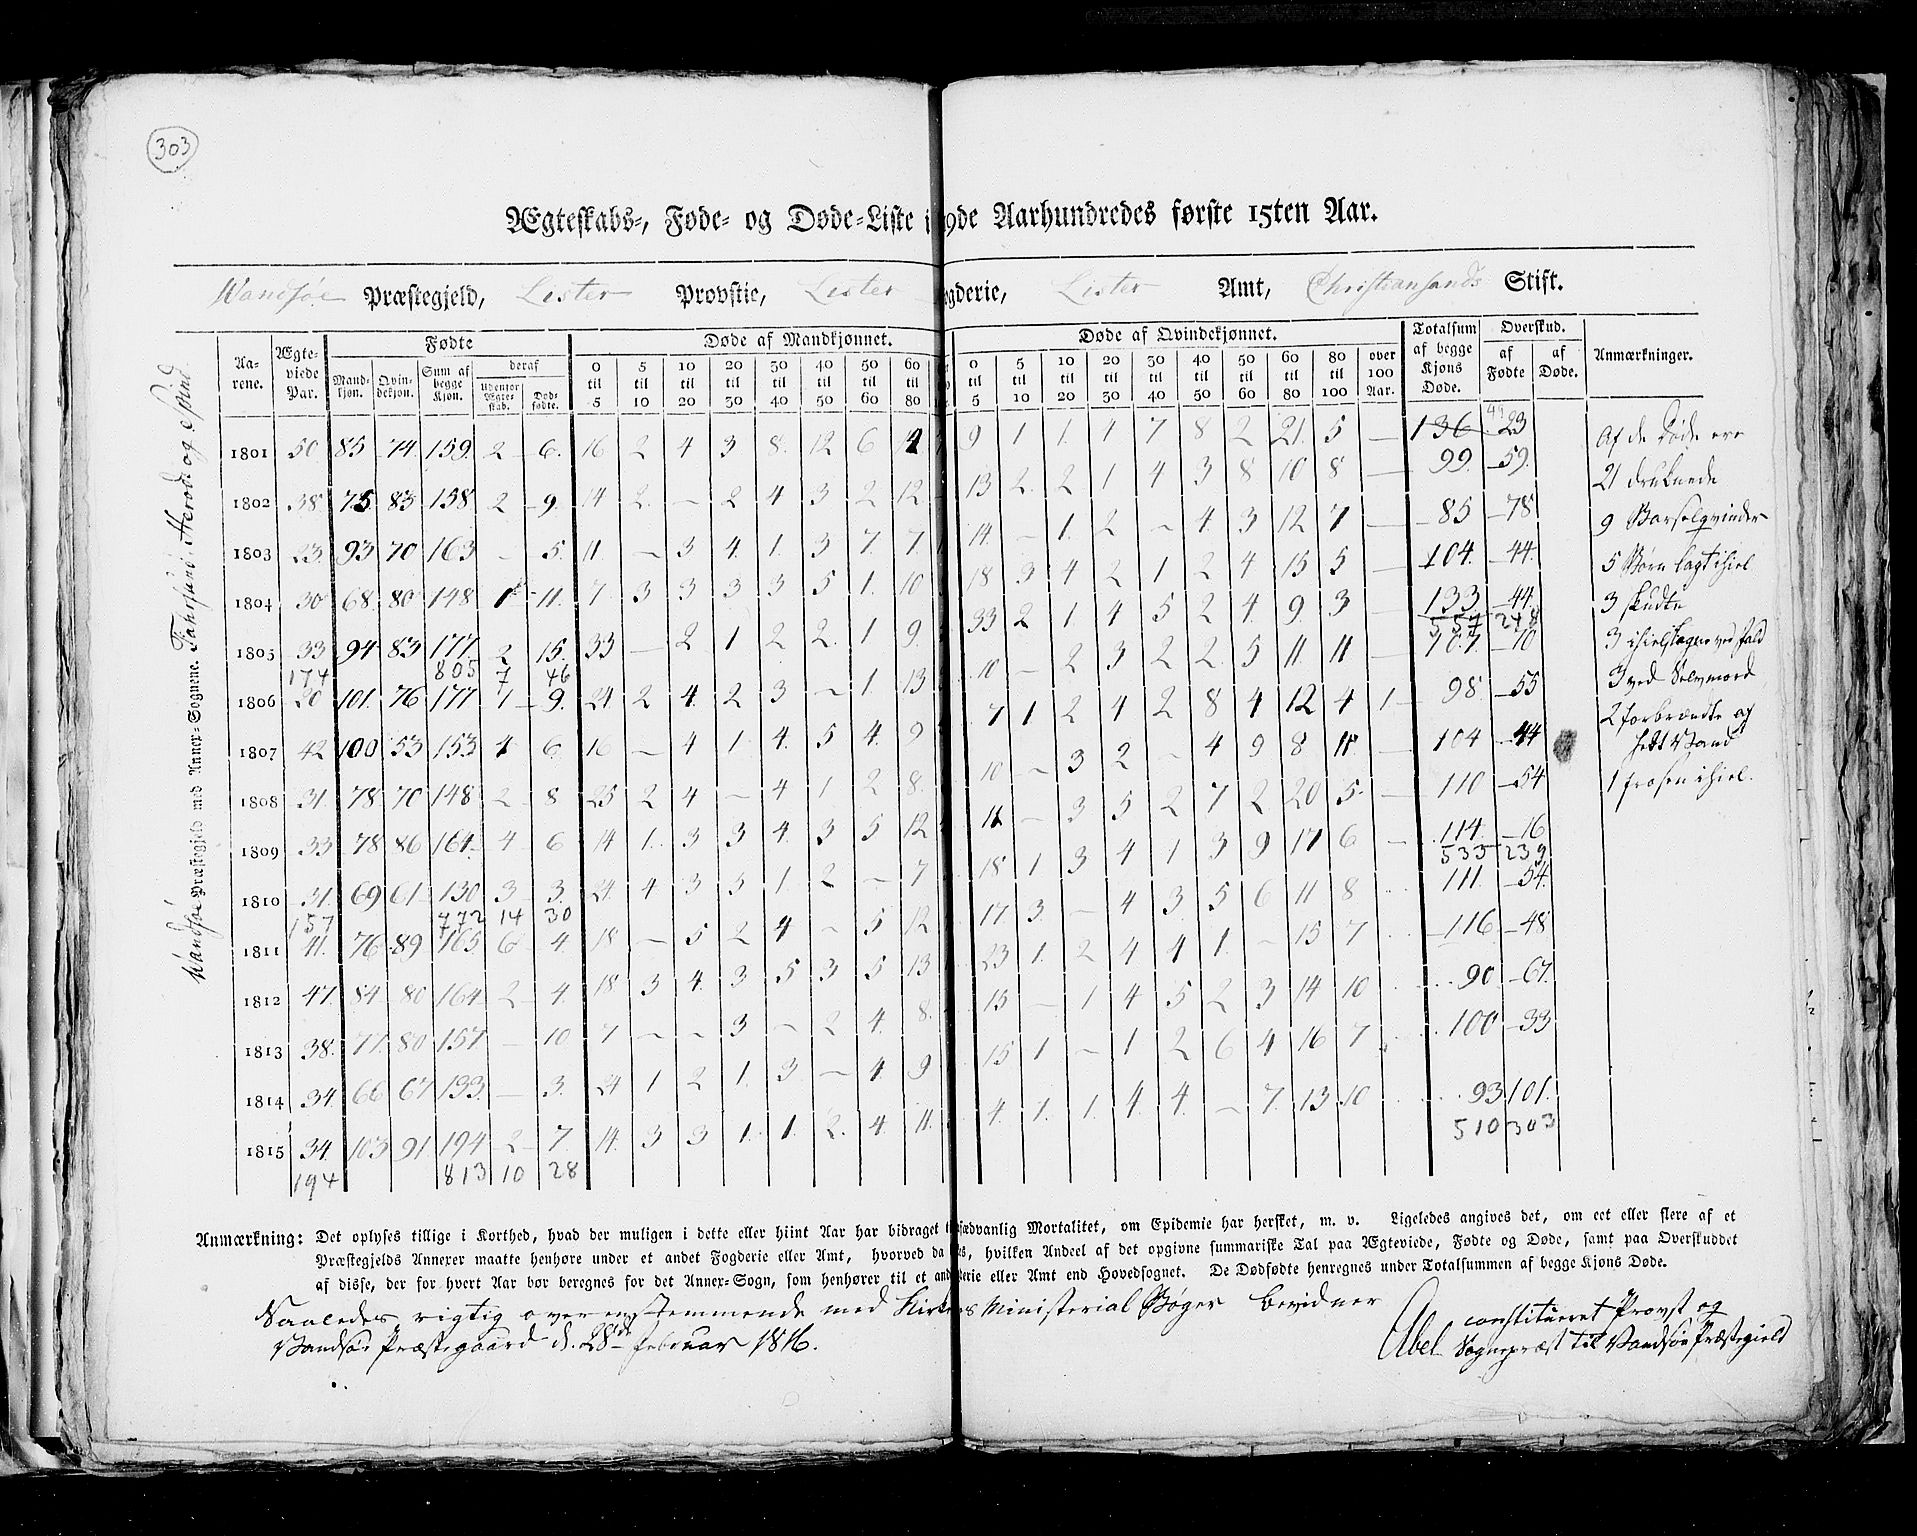 303
Ægteskabs-, Føde- og Døde-Liste i 19de Aarhundredes første 15ten Aar.
Wandsøe Præstegjeld, Lister Provstie, Lister ogderie, Lister Amt, Christiansands Stift.
Wandsøe Præstegjeld med Annex-Sognene. Fahrsund, Herod og Spind
Aarene. Ægteviede Par. Fødte Døde af Mandkjønnet. Døde af Qvindekjønnet. Totalsum af begge Kjøns Døde. Overskud. Anmærkninger.
Mandkjøn. Qvindekjøn. Sum af begge Kjøn. deraf Udenfor Ægteskab. Dødfødte. af Fødte af Døde.
0 til 5 5 til 10 10 til 20 20 til 30 30 til 40 40 til 50 50 til 60 60 til 80
0 til 5 5 til 10 10 til 20 20 til 30 30 til 40 40 til 50 50 til 60 60 til 80 80 til 100 over 100 Aar.
1801 50 85 74 159 2 6 16 2 4 3 8 12 6 4 9 1 1 4 7 8 2 21 5 — 136 23 Af de Døde ere
1802 38 75 83 158 2 9 14 2 — 2 4 3 2 12 13 2 2 1 4 3 8 10 8 — 99 59 21 druknede
1803 23 93 70 163 — 5 11 — 3 4 1 3 7 7 14 — 1 2 — 4 3 12 7 — 85 78 9 Barselqvinder
1804 30 68 80 148 1 11 7 3 3 3 3 5 1 10 18 3 4 2 1 2 4 15 5 — 104 44 5 Børn lagt ihiel
1805 33 94 83 177 2 15 33 — 2 1 2 2 1 9 33 2 1 4 5 2 4 9 3 — 133 44 3 skudte
174 805 7 46 557 248
1806 20 101 76 177 1 9 24 2 4 2 3 — 1 13 10 — 2 3 2 2 5 11 11 — 107 10 3 ihielslagne ved fald
1807 42 100 53 153 4 6 16 — 4 1 4 5 4 9 7 1 2 4 2 8 4 12 4 1 98 55 3 ved Selvmord
1808 31 78 70 148 2 8 25 2 4 — 4 1 2 8 10 — 3 2 — 4 9 8 11 — 104 44 2 forbrændte og hedt Vand
1809 33 78 86 164 4 6 14 1 3 3 4 3 5 12 11 — 3 5 2 7 2 20 5 — 110 54 1 frosen ihiel.
1810 31 69 61 130 3 3 24 4 3 5 1 2 — 7 18 1 3 4 1 3 9 17 6 — 114 16
157 772 14 30 533 239
1811 41 76 89 165 6 4 18 — 5 2 4 — 5 12 17 3 — 4 3 5 6 11 8 111 54
1812 47 84 80 164 2 4 18 3 4 3 5 3 5 13 23 1 2 4 4 1 — 15 7 116 48
1813 38 77 80 157 — 10 7 — — 3 — 2 4 8 15 — 1 4 5 2 3 14 10 90 67
1814 34 66 67 133 — 3 24 1 2 1 3 — 4 9 15 1 — 1 2 6 4 16 7 100 33
1815 34 103 91 194 2 7 14 3 3 1 1 2 4 11 4 1 1 4 4 — 7 13 10 93 101
194 813 10 28 510 303
Anmærkning: Det oplyses tillige i Korthed, hvad der muligen i dette eller hiint Aar har bidraget sædvanlig Mortalitet, om Epidemie har hersket, m. v. Ligeledes angives det, om eet eller flere af et
Præstegjelds Annexer maatte henhøre under et andet Fogderie eller Amt, hvorved da s, hvilken Andeel af det opgivne summariske Tal paa Ægteviede, Fødte og Døde, samt paa Overskuddet
af disse, der for hvert Aar bør beregnes for det Annex-Sogn, som henhører til et and erie eller Amt end Hovedsognet. De Dødfødte henregnes under Totalsummen af begge Kjøns Døde.
Saaledes rigtig overensstemmende med Kirkens Ministerial Bøger bevidner
Vandsøe Præstegaard d. 28de Februar 1816.
Abel constitueret Provst og
Sognepræst til Vandsøe Præstegield